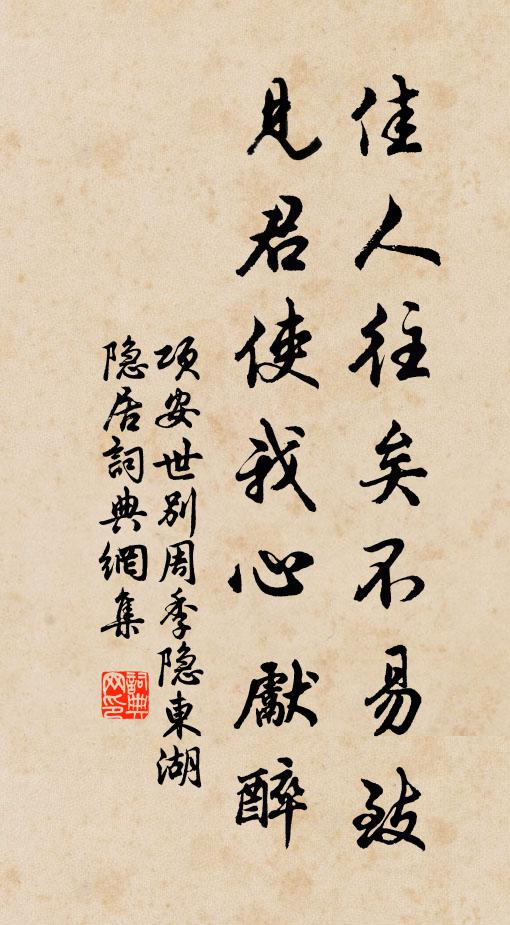 佳人往矣不易致
見君使我心獻醉
項安世別周季隐東湖
隐居詞典網集
詞典網印